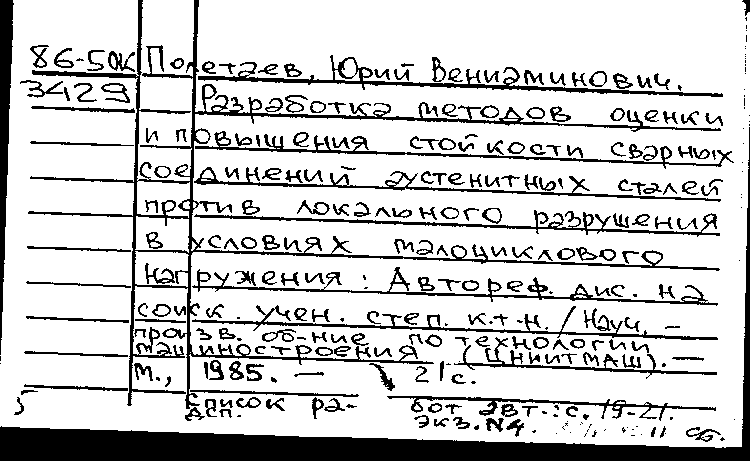 86-5ОК Полетаев, Юрий Вениаминович.
3429 Разработка методов оценки
и повышения стойкости сварных
соединений аустенитных сталей
против локального разрушения
в условиях малоциклового
нагружения : Автореф. дис. на
соиск. учен. степ. к.т.н. / Науч. –
произв. об-ние по технологии
машиностроения (ЦНИИТМАШ). —
М., 1985. — 21с.
Список работ авт.: с. 19-21.
ДСП. экз. N4.